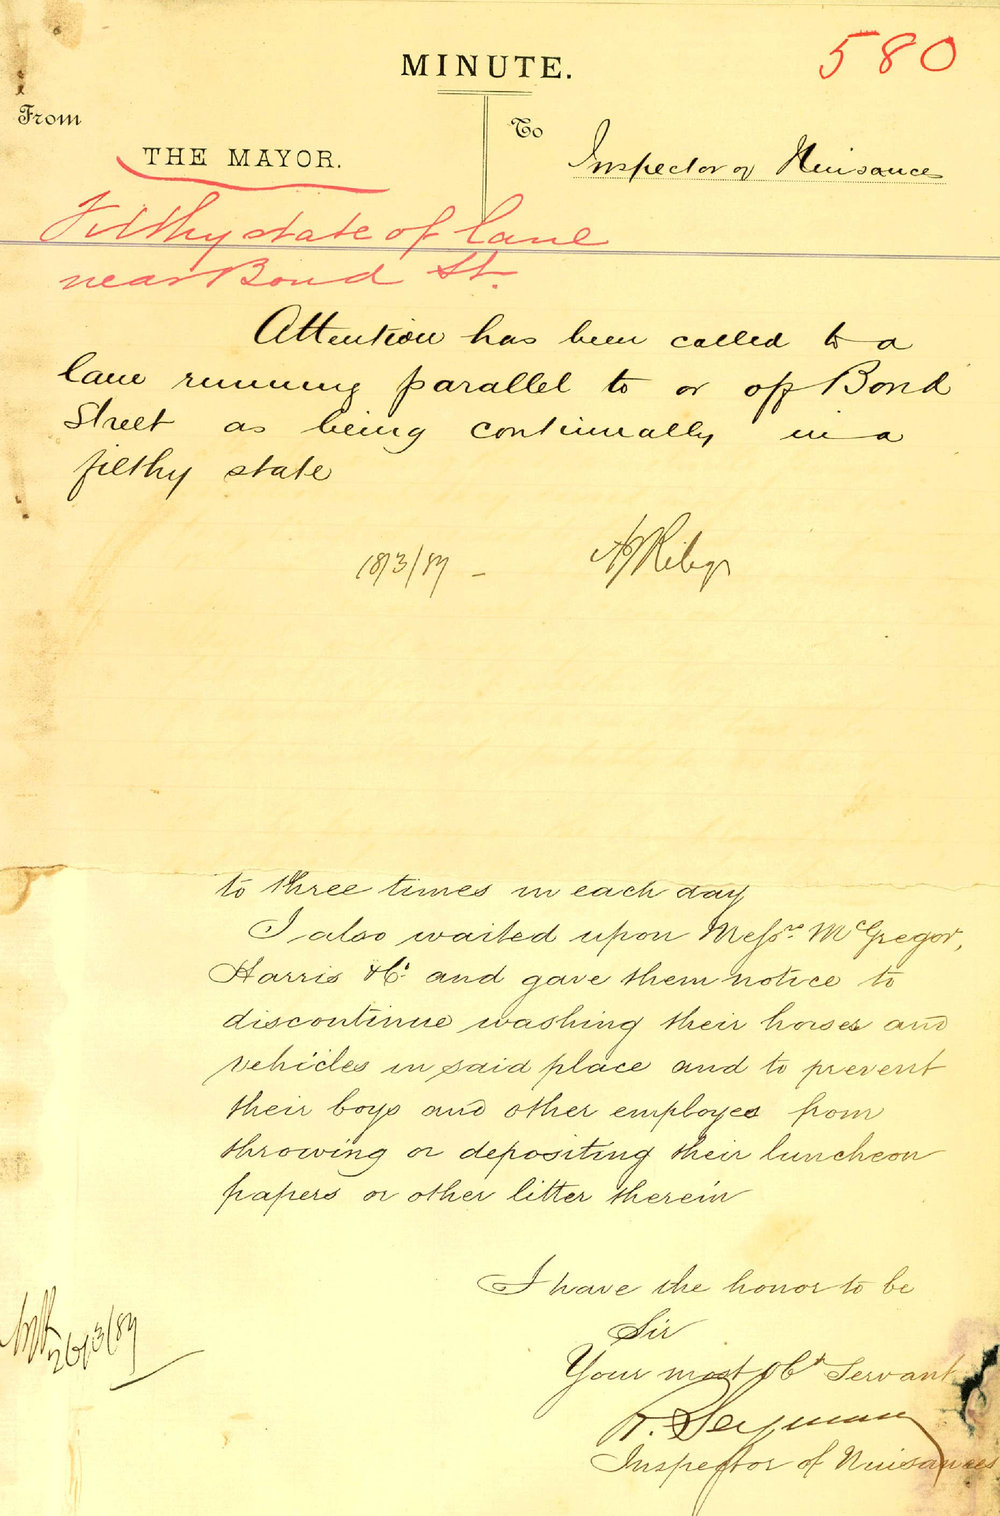 580
MINUTE.
From
To
THE MAYOR.
Inspector of Nuisances
Filthy state of lane
near Bond St.
Attention has been called to a
lane running parallel to or off Bond
Street as being continually in a
filthy state
18/3/87 -
to three times in each day
I also waited upon Messrs. McGregor,
Harris & Co. and gave them notice to
discontinue washing their horses and
vehicles in said place and to prevent
their boys and other employes from
throwing or depositing their luncheon
papers or other litter therein
I have the honor to be
Sir
Your most Obt Servant
R. Seymour
Inspector of Nuisances
26/3/87